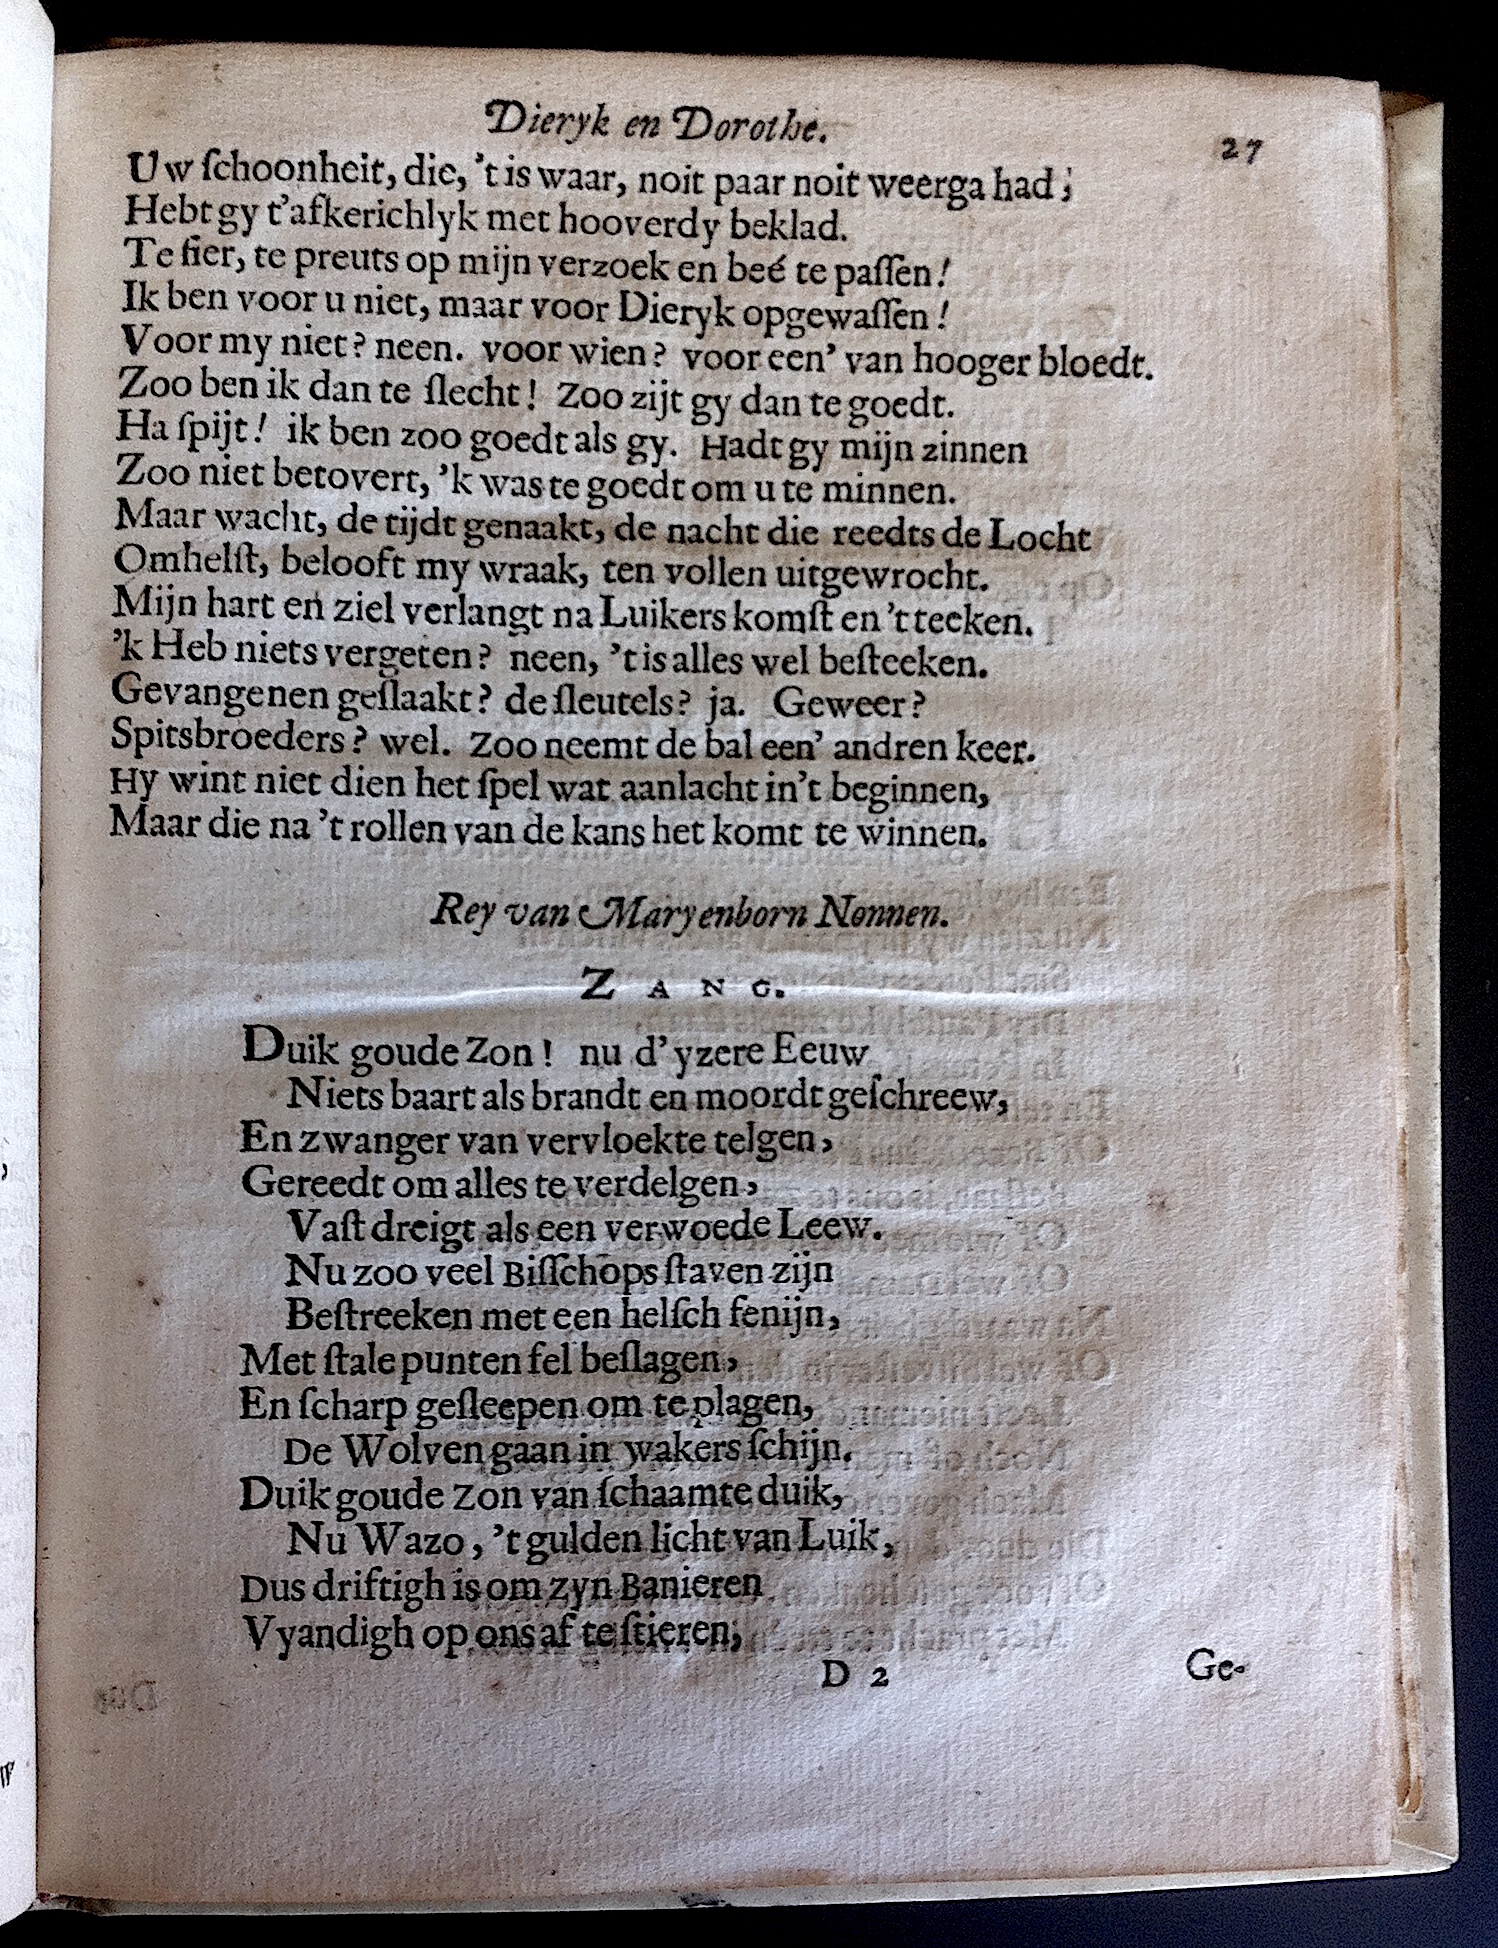 Dieryk en Dorothe.
27
Uw ſchoonheit, die, ’t is waar, noit paar noit weerga had;
Hebt gy t’afkerichlyk met hooverdy beklad.
Te fier, te preuts op mijn verzoek en beé te paſſen!
Ik ben voor u niet, maar voor Dieryk opgewaſſen!
Voor my niet? neen. voor wien? voor een’ van hooger bloedt.
Zoo ben ik dan te ſlecht! Zoo zijt gy dan te goedt.
Ha ſpijt! ik ben zoo goedt als gy. Hadt gy mijn zinnen
Zoo niet betovert, ’k was te goedt om u te minnen.
Maar wacht, de tijdt genaakt, de nacht die reedts de Locht
Omhelſt, belooft my wraak, ten vollen uitgewrocht.
Mijn hart en ziel verlangt na Luikers komſt en ’t teeken.
’k Heb niets vergeten? neen, ’t is alles wel beſteeken.
Gevangenen geſlaakt? de ſleutels? ja. Geweer?
Spitsbroeders? wel. Zoo neemt de bal een’ andren keer.
Hy wint niet dien het ſpel wat aanlacht in’t beginnen,
Maar die na ’t rollen van de kans het komt te winnen.
Rey van Maryenborn Nonnen.
ZANG.
Duik goude Zon! nu d’yzere Eeuw
Niets baart als brandt en moordt geſchreew,
En zwanger van vervloekte telgen,
Gereedt om alles te verdelgen,
Vaſt dreigt als een verwoede Leew.
Nu zoo veel Biſſchops ſtaven zijn
Beſtreeken met een helſch fenijn,
Met ſtale punten fel beſlagen,
En ſcharp geſleepen om te plagen,
De Wolven gaan in wakers ſchijn.
Duik goude Zon van ſchaamte duik,
Nu Wazo, ’t gulden licht van Luik,
Dus driftigh is om zyn Banieren
Vyandigh op ons af te ſtieren;
D 2
Ge-